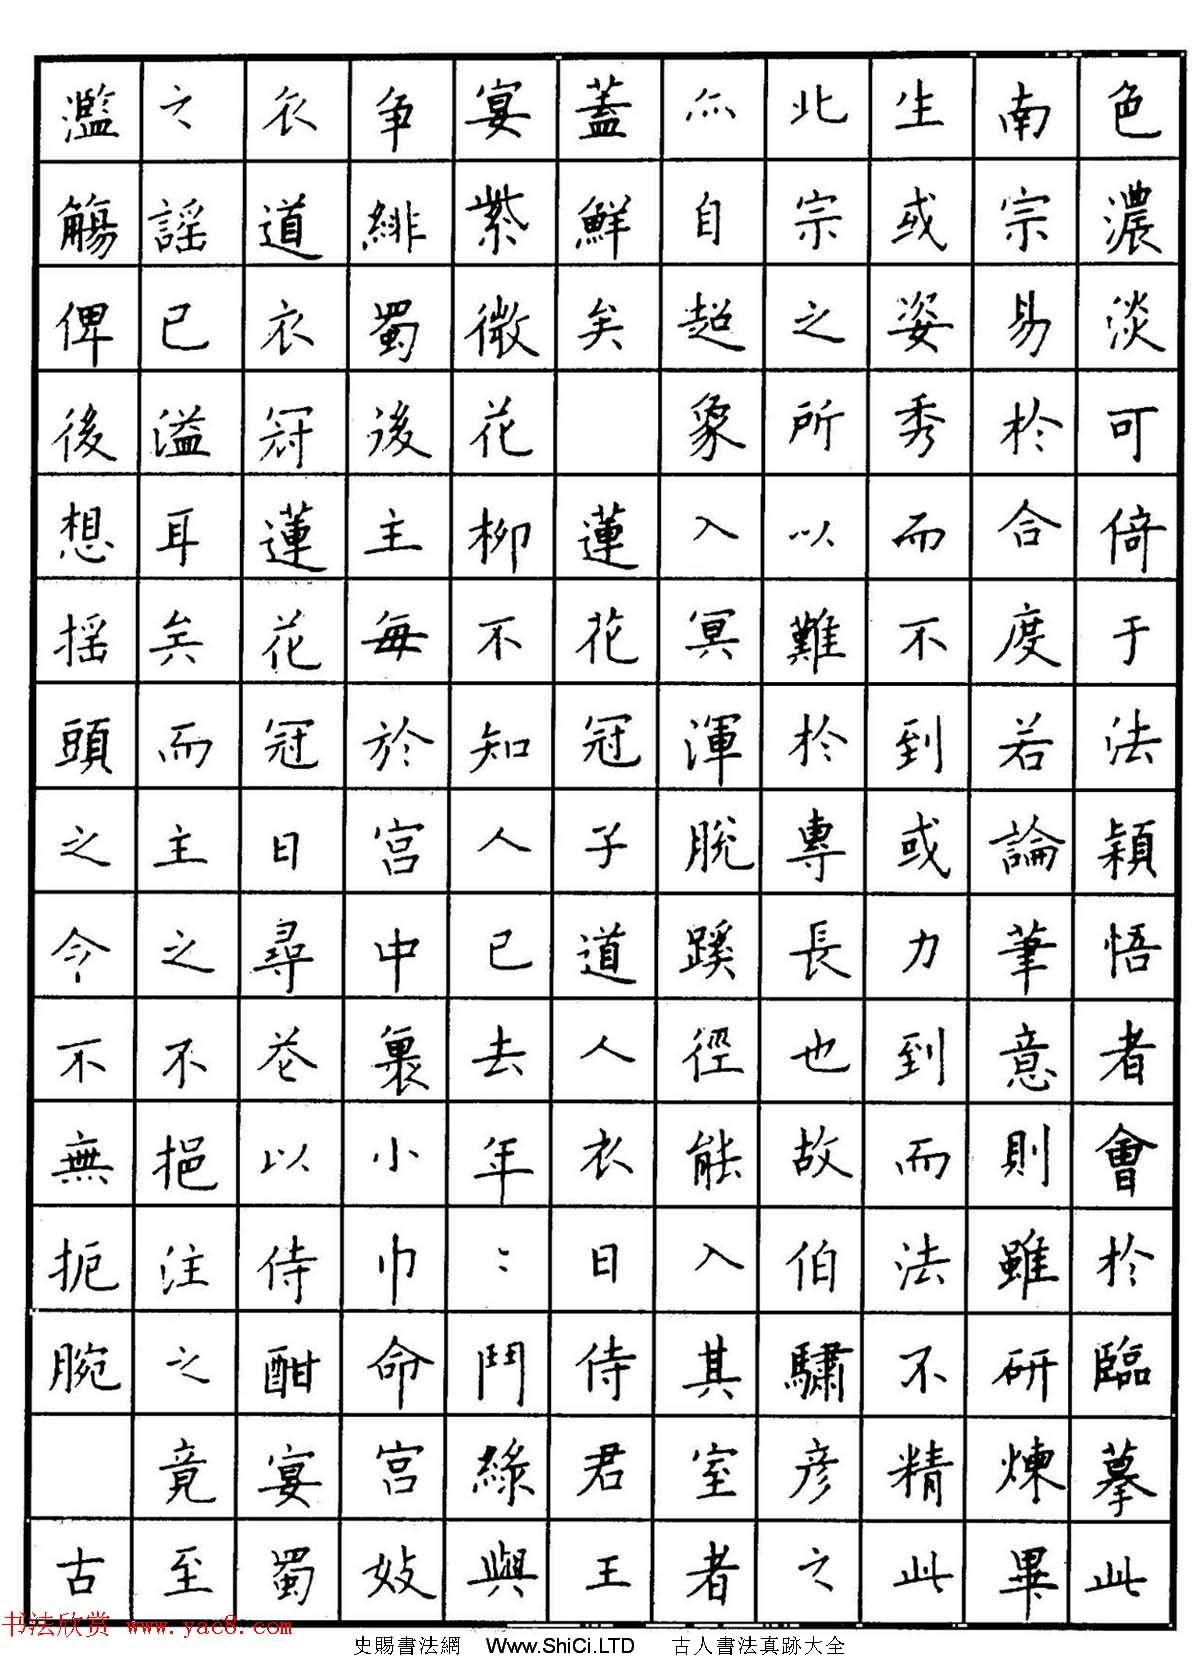 色濃淡可倚于法穎悟者會於臨摹此
南宗易於合度若論筆意則雖研煉畢
生或姿秀而不到或力到而法不精此
北宗之所以難於專長也故伯驌彥之
灬自超象入冥渾脫蹊徑能入其室者
蓋鮮矣 蓮花冠子道人衣日侍君王
宴紫微花柳不知人已去年〻鬥綠與
爭緋蜀後主每於宮中裹小巾命宮妓
衣道衣冠蓮花冠日尋花以侍酣宴蜀
之謠已溢耳矣而主之不挹注之竟至
濫觴俾後想搖頭之今不無扼腕 古
书法欣赏 www.yac8.com
史賜書法網 Www.ShiCi.LTD 古人書法真跡大全